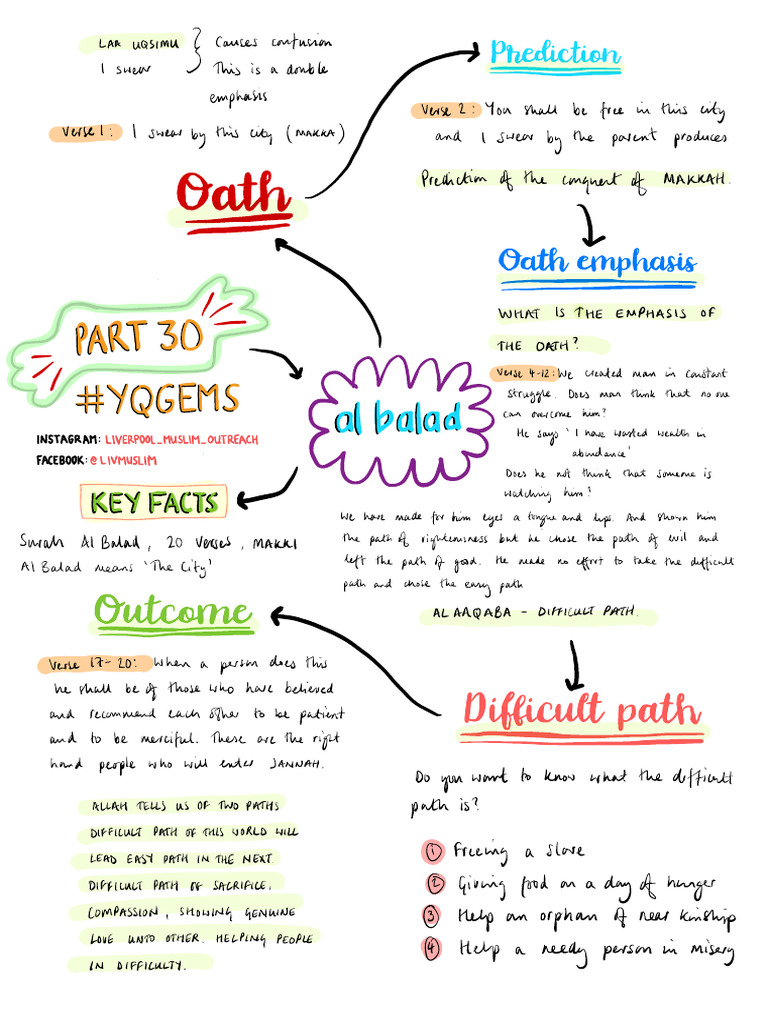 LAR UQSIMU } Causes confusion
I swear This is a double
emphasis
Verse 1: I swear by this city (MAKKA)
Oath
Prediction
Verse 2: You shall be free in this city
and I swear by the parent produces
Prediction of the conquest of MAKKAH.
Oath emphasis
WHAT IS THE EMPHASIS OF
THE OATH?
Verse 4-12: We created man in constant
struggle. Does man think that no one
can overcome him?
He says 'I have wasted wealth in
abundance'
Does he not think that someone is
watching him?
We have made for him eyes a tongue and lips. And shown him
the path of righteousness but he chose the path of evil and
left the path of good. He made no effort to take the difficult
path and chose the easy path
AL AAQABA - DIFFICULT PATH.
PART 30
#YQGEMS
INSTAGRAM: LIVERPOOL_MUSLIM_OUTREACH
FACEBOOK: @LIVMUSLIM
al balad
KEY FACTS
Surah Al Balad, 20 verses, MAKKI
Al Balad means 'The City'
Difficult path
Do you want to know what the difficult
path is?
1 Freeing a slave
2 Giving food on a day of hunger
3 Help an orphan of near kinship
4 Help a needy person in misery
Outcome
Verse 17-20: When a person does this
he shall be of those who have believed
and recommend each other to be patient
and to be merciful. These are the right
hand people who will enter JANNAH.
ALLAH TELLS US OF TWO PATHS
DIFFICULT PATH OF THIS WORLD WILL
LEAD EASY PATH IN THE NEXT.
DIFFICULT PATH OF SACRIFICE,
COMPASSION, SHOWING GENUINE
LOVE UNTO OTHER. HELPING PEOPLE
IN DIFFICULTY.